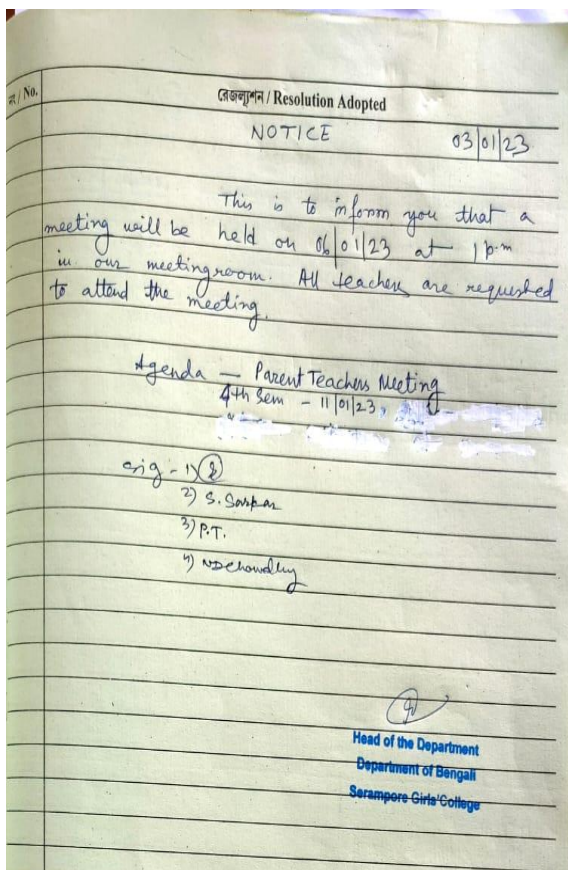 নং / No.
রেজল্যুশন / Resolution Adopted
NOTICE
03/01/23
This is to inform you that a
meeting will be held on 06/01/23 at 1 p.m
in our meeting room. All teachers are requested
to attend the meeting.
Agenda — Parent Teachers Meeting
4th Sem - 11/01/23,
sig - 1)
2) S. Sarkar
3) P.T.
4) NDChowdhury
Head of the Department
Department of Bengali
Serampore Girls' College